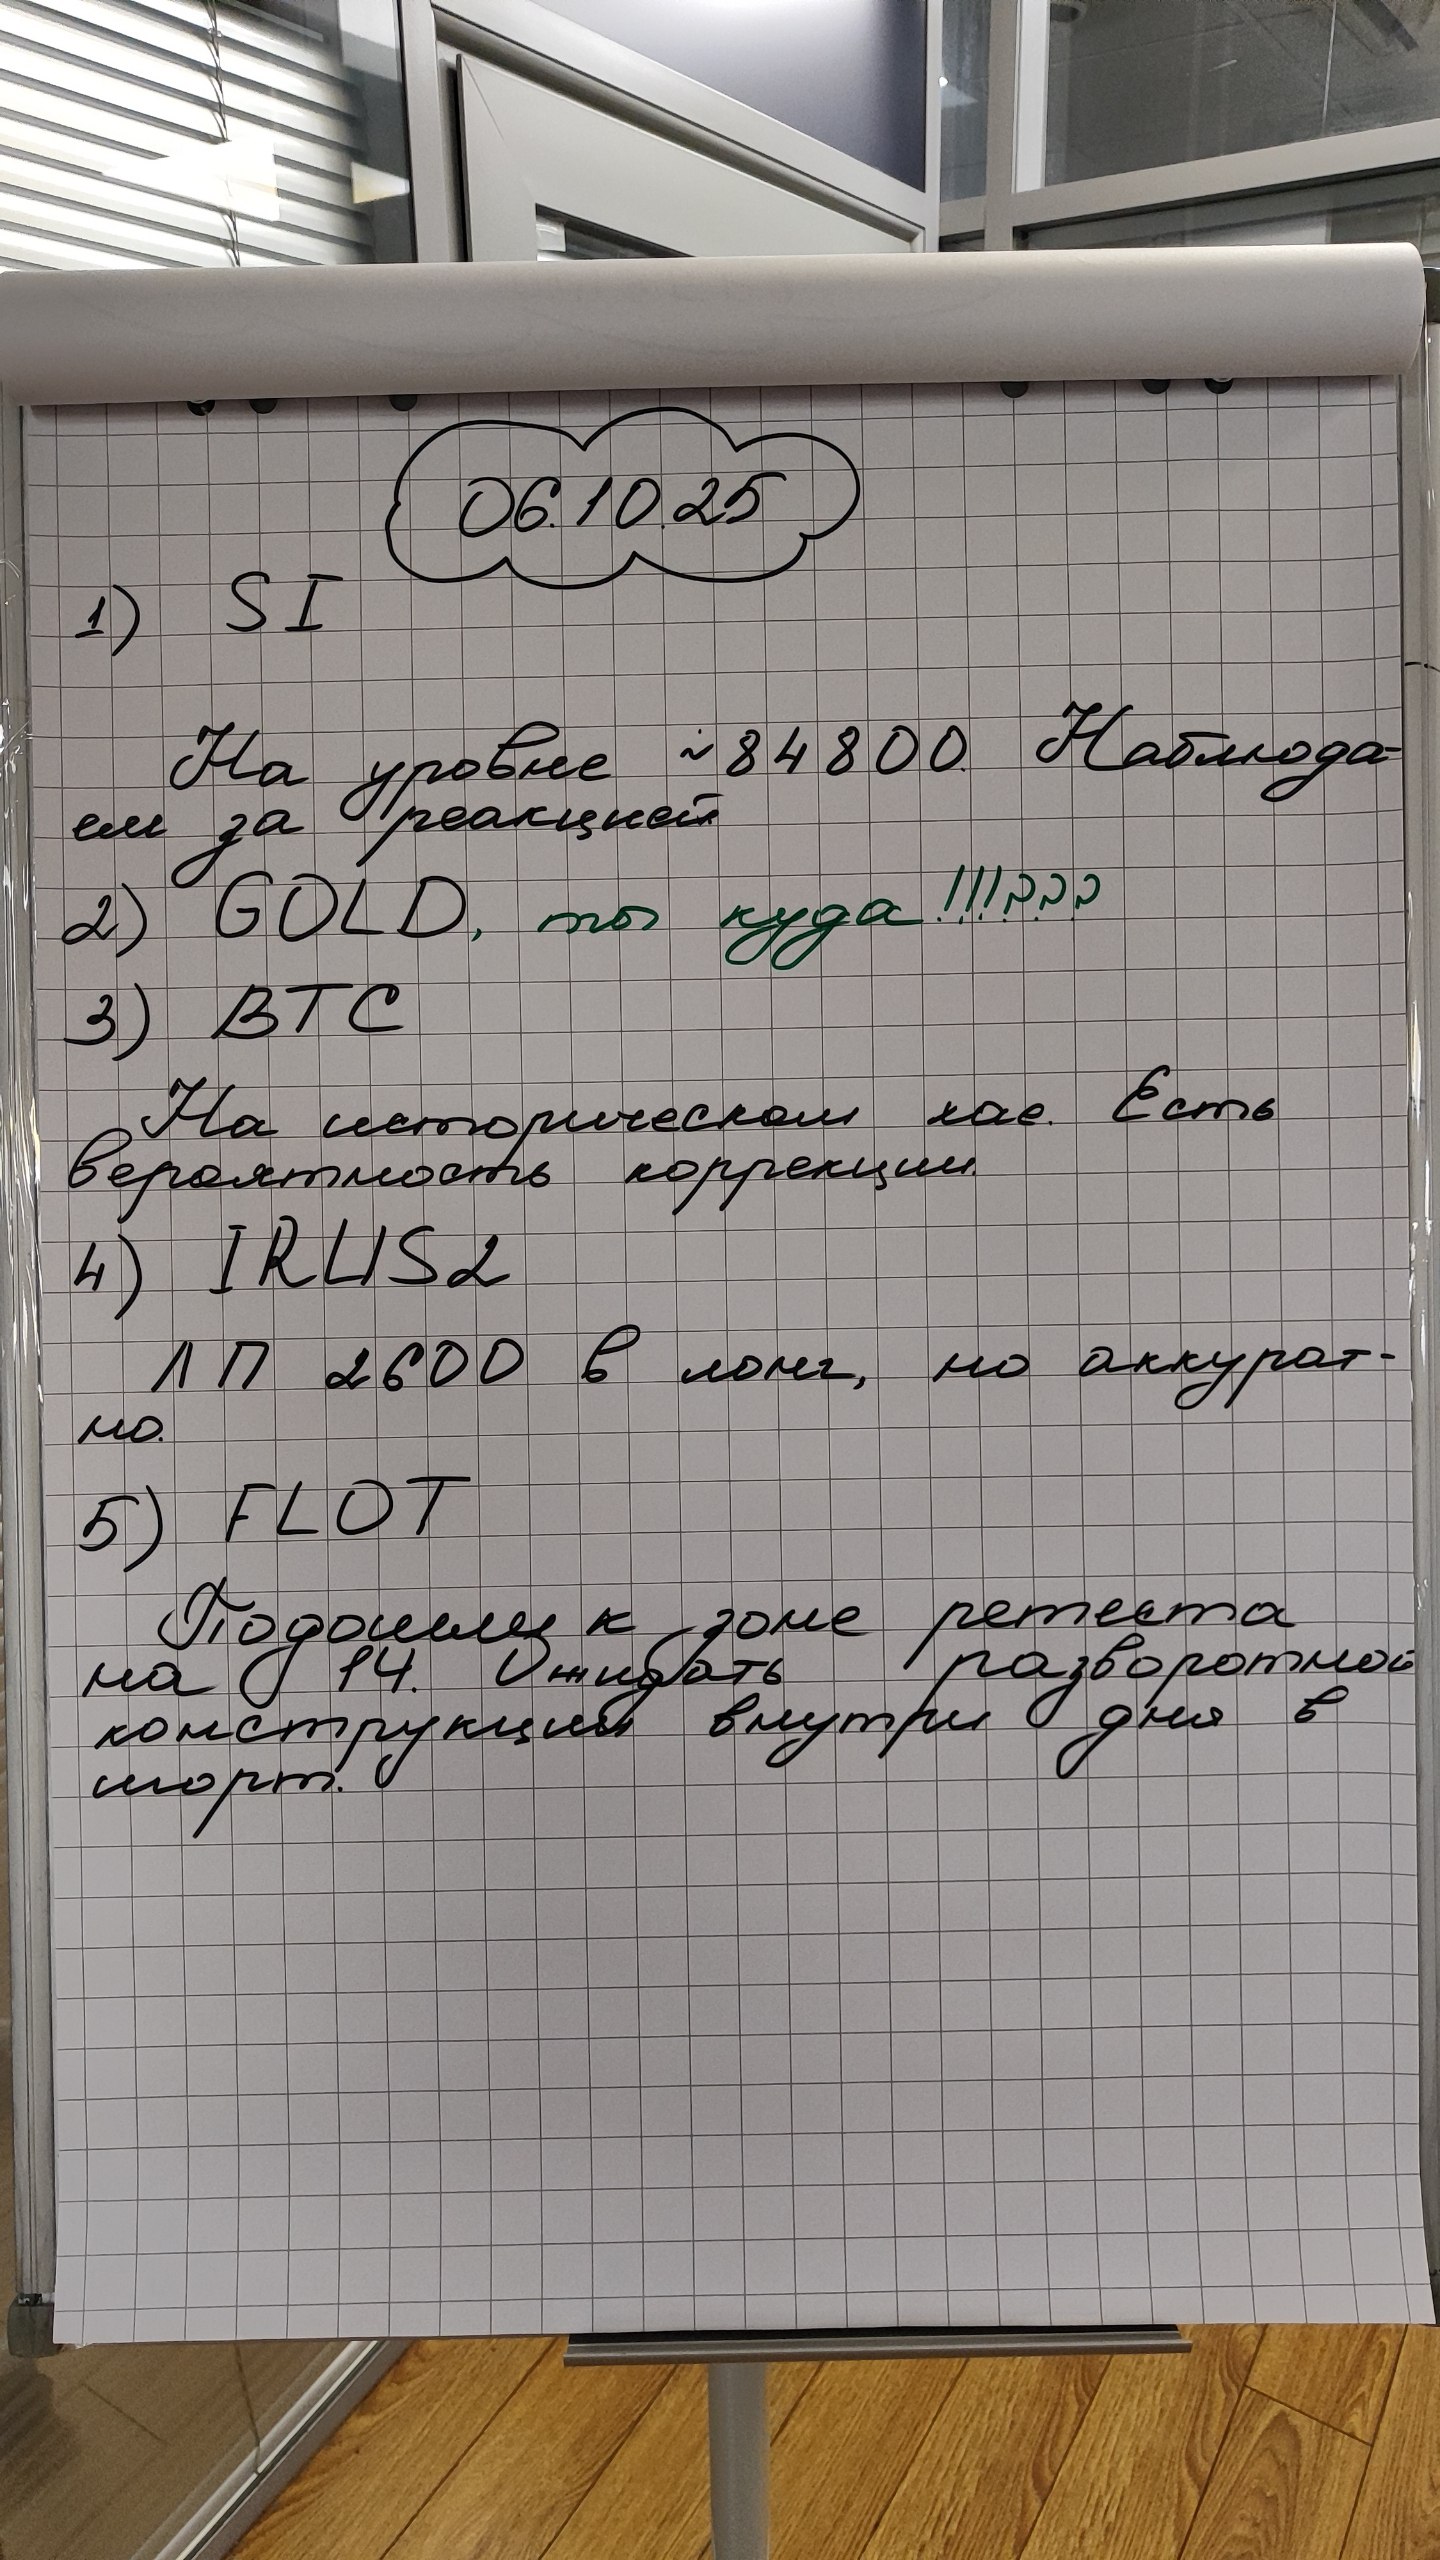 06.10.25
1) SI
На уровне ~84800. Наблюда-
ем за реакцией
2) GOLD, ты куда!!!???
3) BTC
На историческом хае. Есть
вероятность коррекции.
4) IRUS2
ЛП 2600 в лонг, но аккурат-
но.
5) FLOT
Подошли к зоне ретеста
на 14. Ожидать разворотной
конструкции внутри дня в
шорт.